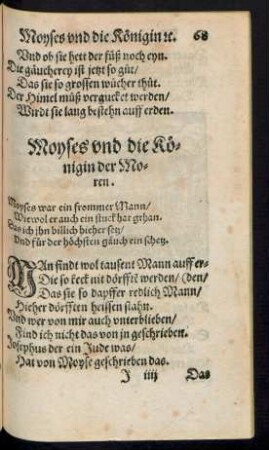 Moyses vnd die Königin ꝛc. 68
Vnd ob sie hett der füß noch eyn.
Die gäucherey ist jetzt so gůt/
Das sie so grossen wücher thůt.
Der Himel můß vergucket werden/
Wirdt sie lang bestehn auff erden.
Moyses vnd die Kö-
nigin der Mo-
ren.
Moyses war ein frommer Mann/
Wiewol er auch ein stuck hat gthan.
Das ich jhn billich hieher setz/
Vnd für der höchsten gäuch ein schetz.
MAn findt wol tausent Mann auff er-
Die so keck nit dörfftē werden/ (den/
Das sie so dapffer redlich Mann/
Hieher dörfften heissen stahn.
Vnd wer von mir auch vnterblieben/
Find ich nicht das von jn geschrieben.
Josephus der ein Jude was/
Hat von Moyse geschrieben das.
J iiij Das